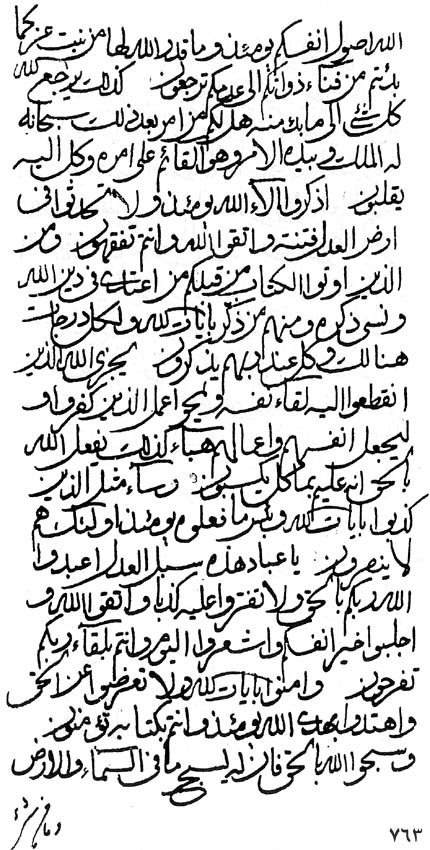 الله اصول انفسكم يومئذ وما قدر الله لها من بنت عز كما
بدئتم من فناء ذواتكم الى عدمكم ترجعون كذلك يرجع كله
كل شئ الى ما بدء منه هل لكم من امر بعد ذلك سبحانه
له الملك وبيده الامر وهو القائم على امره وكل اليه
يقلبون اذكروا الاء الله يومئذ ولا تحدثوا فى
ارض العدل فتنة واتقوا الله وانتم تفقهون ومن
الذين اوتوا الكتاب من قبلكم من اعتدى فى دين الله
ونسى ذكره ومنهم من ذكر بايات الله ولكل درجات
هنالك وكل عند ربهم يذكرون يجزى الله الذين
انقطعوا اليه لقاء نفسه ويمحو اعمل الذين كفروا و
ليجعل انفسهم واعمالهم هباء كذلك يفعل الله
بالحق انه عليم بما كل يكسبون وساء مثل الذين
كذبوا بايات الله وبئس ما فعلوه يومئذ اولئك هم
لا ينصرون يا عباد هذه سبل العدل اعبدوا
الله ربكم بالحق ولا تفتروا عليه كذبا واتقوا الله و
اجلبوا خير انفسكم واشعروا اليوم وانتم بلقاء ربكم
تفرحون وامنوا بايات الله ولا تعرضوا عن الحق
واهتدوا بهدى الله يومئذ وانتم بكتابه تؤمنون
وسبحوا الله بالحق فان له يسبح ما فى السماء والارض
٧٦٣